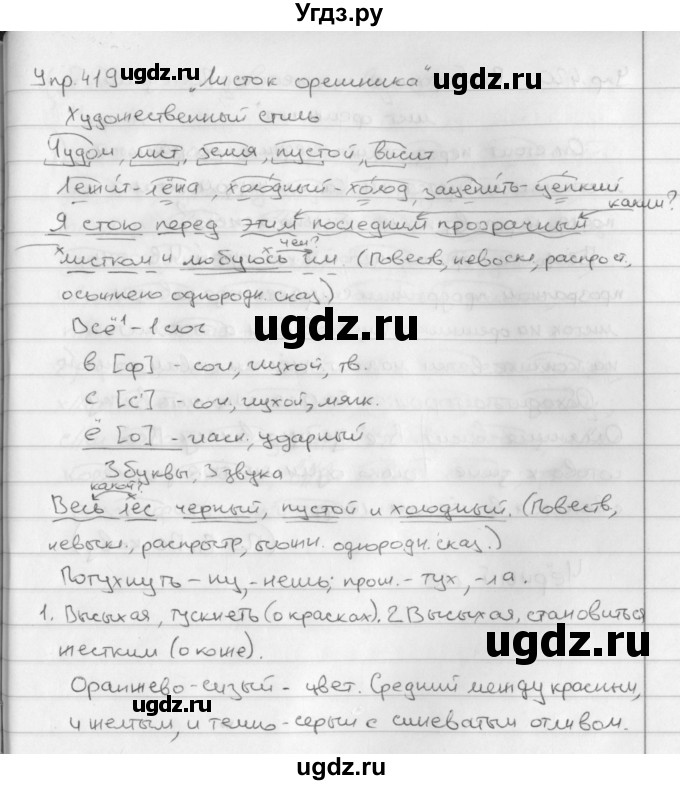 Угдз.ру
Упр. 419 „Листок орешника"
Художественный стиль
Чудом, лист, земля, пустой, висит
Лежит-лёжа, холодный-холод, зацепить-цепкий
какими?
Я стою перед этим последним прозрачным
чем?
листком и любуюсь им (Повеств, невоскл, распрост,
осложнено однородн. сказ.)
Всё - 1 слог
в [ф] - согл, глухой, тв.
с [с'] - согл, глухой, мягк.
ё [о] - гласн, ударный
3 буквы, 3 звука
какой?
Весь лес черный, пустой и холодный. (Повеств,
невоскл., распрыстр, ослож. однородн. сказ.)
Потухнуть - ну, -нешь; прош. - тух, -ла.
1. Высыхая, тускнеть (о красках). 2 Высыхая, становиться
жестким (о коже).
Оранжево-сизый - цвет. Средний между красным,
и желтым, и темно-серый с синеватым отливом.
ugdz.ru
ugdz.ru
ugdz.ru
ugdz.ru
ugdz.ru
ugdz.ru
ugdz.ru
ugdz.ru